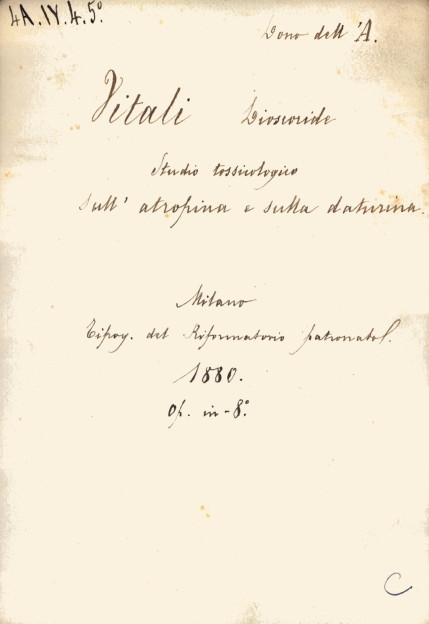 4A.IV.4.5°
Dono dell'A.
Vitali Dioscoride
Studio tossicologico
sull' atropina e sulla daturina.
Milano
Tipog. del Riformatorio patronato
1880.
Op. in-8°.
C